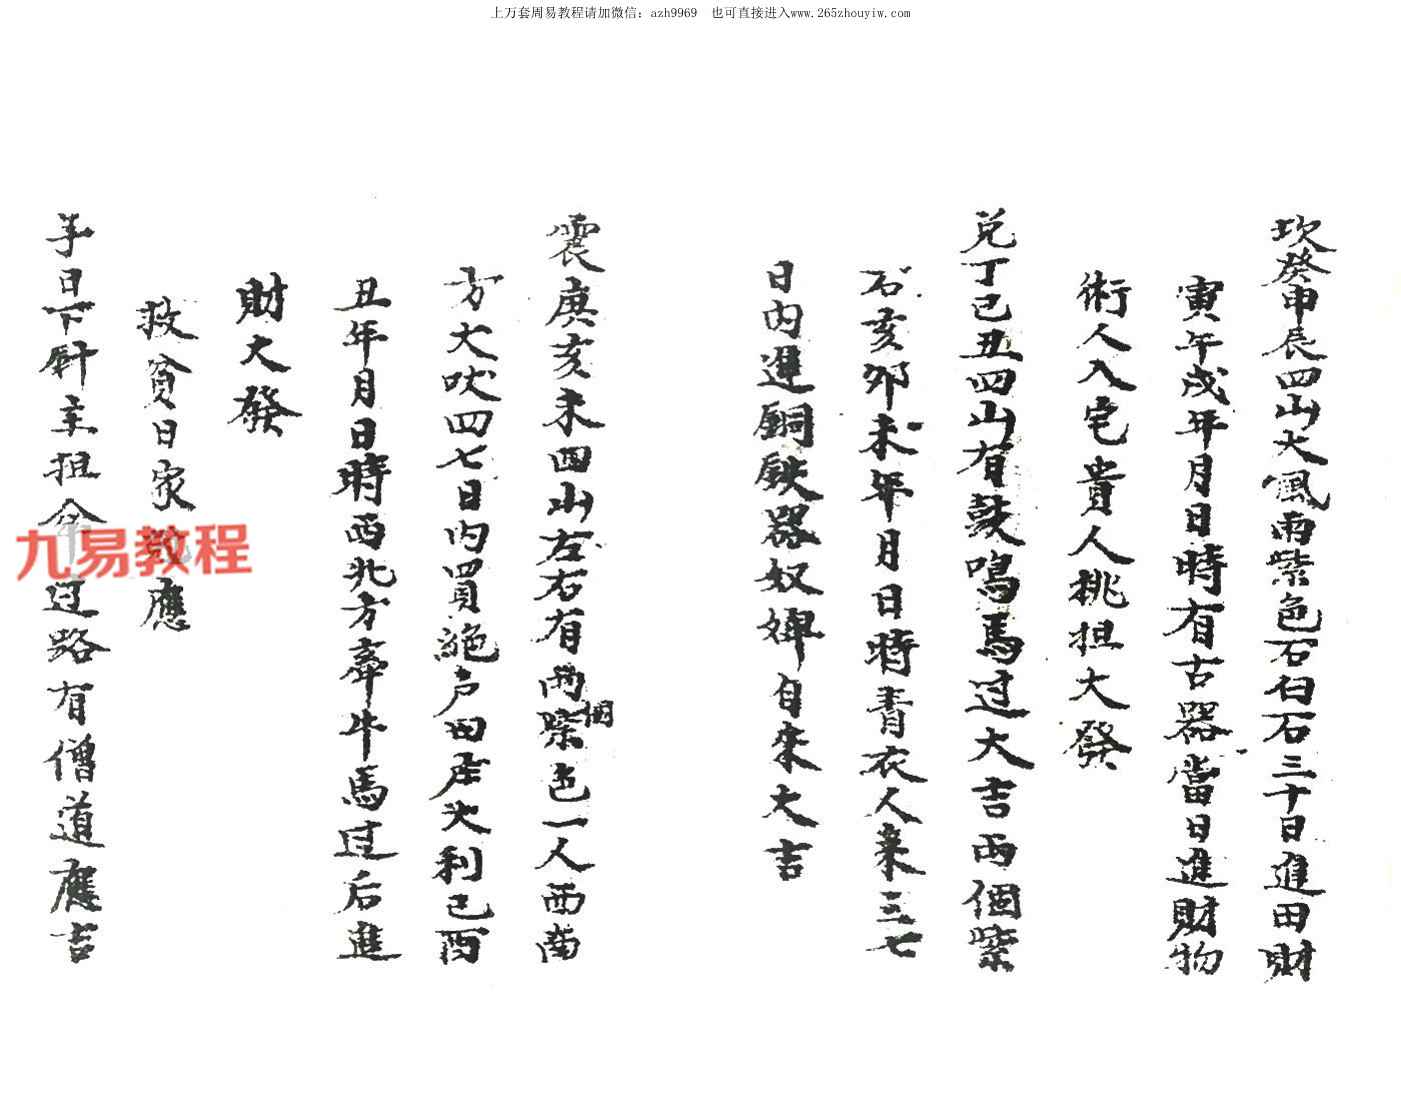 上万套周易教程请加微信：azh9969 也可直接进入www.265zhouyiw.com
坎癸申辰四山大風雨紫色石白石三十日進田財
寅午戌年月日時有古器當日進財物
術人入宅貴人挑担大發
兑丁巳丑四山有鼓鳴馬过大吉兩個紫
石亥卯未年月日時青衣人來三七
日内進銅鉄器奴婢自来大吉
震庚亥未四山左右有兩個紫色一人西南
方犬吠四七日内買絶户田居大利巳酉
丑年月日時西北方牽牛馬过后進
財大發
救貧日家應
手日下針主担傘过路有僧道應吉
九易教程